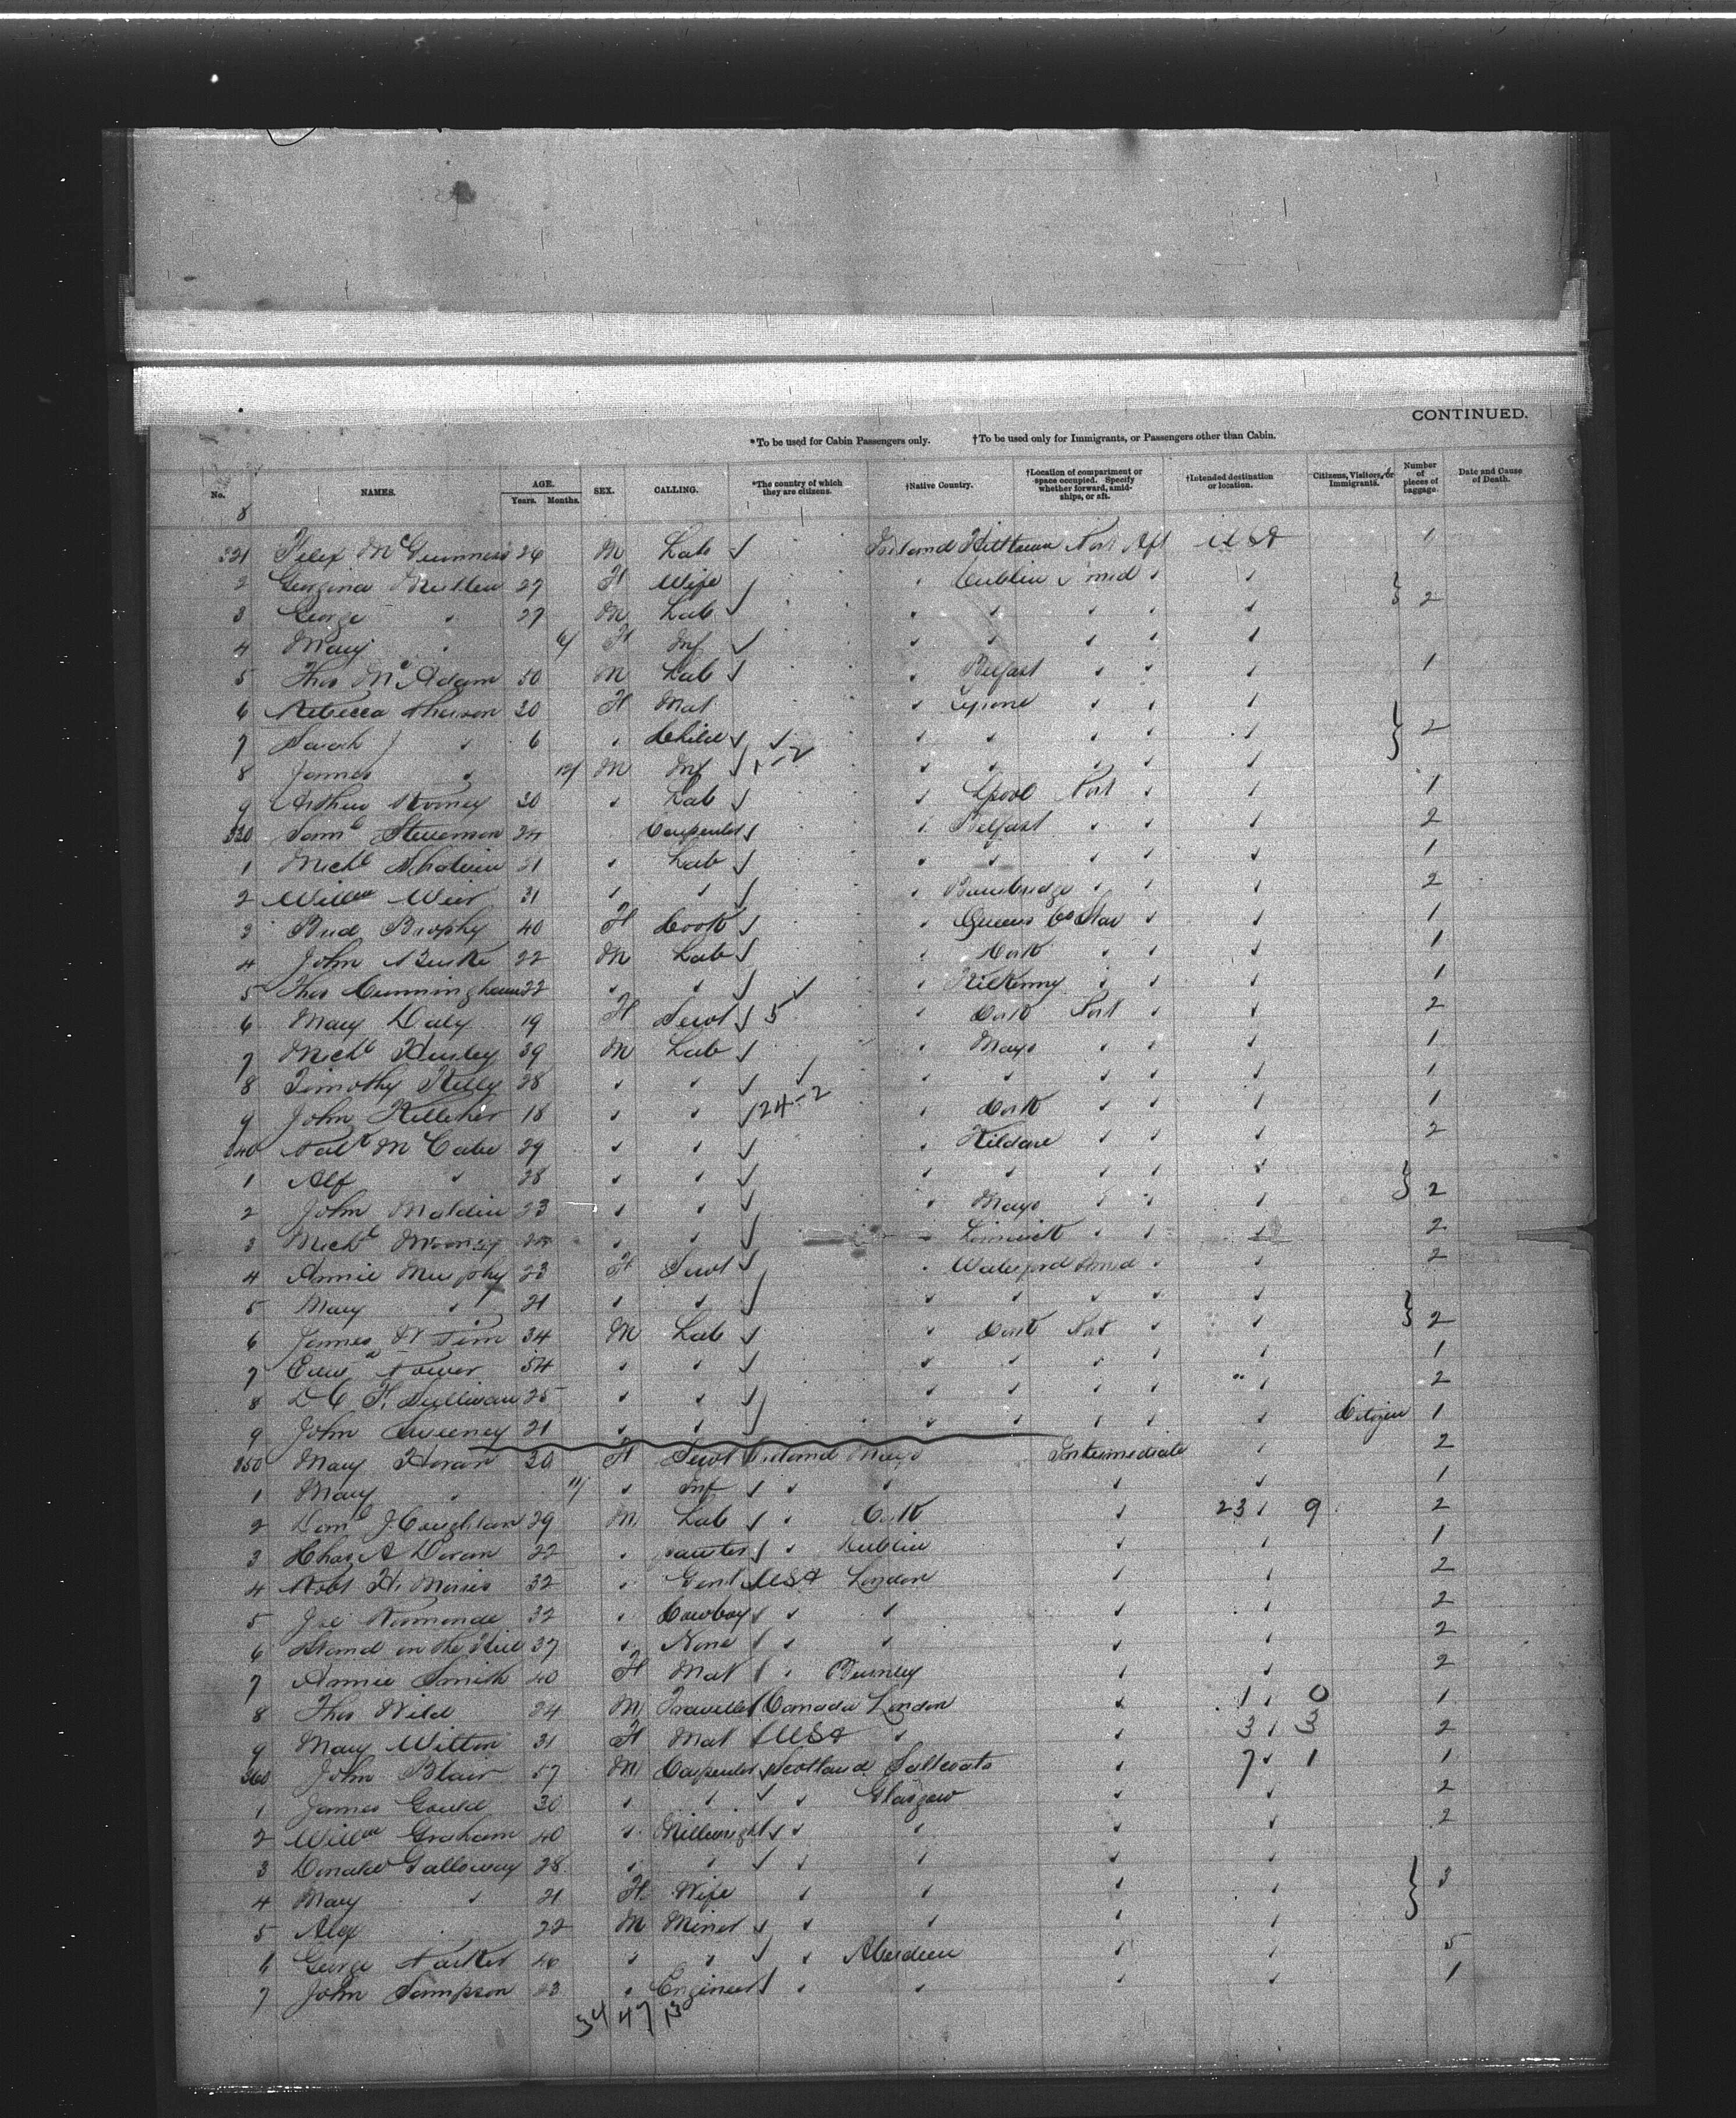 CONTINUED.
*To be used for Cabin Passengers only. †To be used only for Immigrants, or Passengers other than Cabin.
No. NAMES. AGE. Years. Months. SEX. CALLING. *The country of which they are citizens. †Native Country. †Location of compartment or space occupied. Specify whether forward, amidships, or aft. †Intended destination or location. Citizens, Visitors, or Immigrants. Number of pieces of baggage. Date and Cause of Death.
8
321 Felix McGuinness 26 M Lab Ireland Port Aft USA 1
2 Georgina 27 F Wife Dublin mid
3 George 27 M Lab 2
4 Mary F Inf
5 Thos McAdam 50 M Lab Belfast 1
6 Rebecca 30 F Mat Tyrone
7 Sarah J 6 Child 2
8 James M Inf 1-2
9 Arthur 30 Lab Lpool Port 1
330 Saml Stevenson 24 Carpenter Belfast 2
1 Michl 21 Lab 1
2 Willm Weir 31 Banbridge 2
3 Brid Brophy 40 F Cook Queens Co 1
4 John Burke 22 M Lab Cork 1
5 Thos Cunningham 22 Kilkenny 1
6 Mary Daly 19 F Servt 5 Cork Port 2
7 Michl 39 M Lab Mayo 1
8 Timothy Kelly 28 1
9 John Kelleher 18 24-2 Cork 1
340 McCabe 29 Kildare 2
1 Alf 28
2 John 23 Mayo 2
3 Michl Limerick 2
4 Annie Murphy 23 F Servt Waterford mid 2
5 Mary 21
6 James 34 M Lab Cork Port 2
7 Power 54 1
8 Sullivan 25 2
9 John Sweeney 21 Citizen 1
350 Mary Horan 30 F Servt Ireland Mayo Intermediate 2
1 Mary 11/ Inf 1
2 J. Coughlan 29 M Lab Cork 23 9 2
3 Chas A Doran 22 Dublin 1
4 Robt H. Morris 32 Gent USA London 2
5 Joe 32 Cowboy 2
6 Stand on the Hill 37 None 2
7 Annie Smith 40 F Mat Burnley 2
8 Thos Wild 24 M Traveller Canada London 1 0 1
9 Mary Wilton 31 F Mat USA 3 3 2
360 John Blair 57 M Carpenter Scotland Saltcoats 7 1 1
1 James Gould 30 Glasgow 2
2 Willm Graham 40 Millwright 2
3 Donald Galloway 28
4 Mary 21 F Wife 3
5 Alex 22 M Miner
6 George 46 Aberdeen 5
7 John Sampson 23 Engineer 1
34 47 13